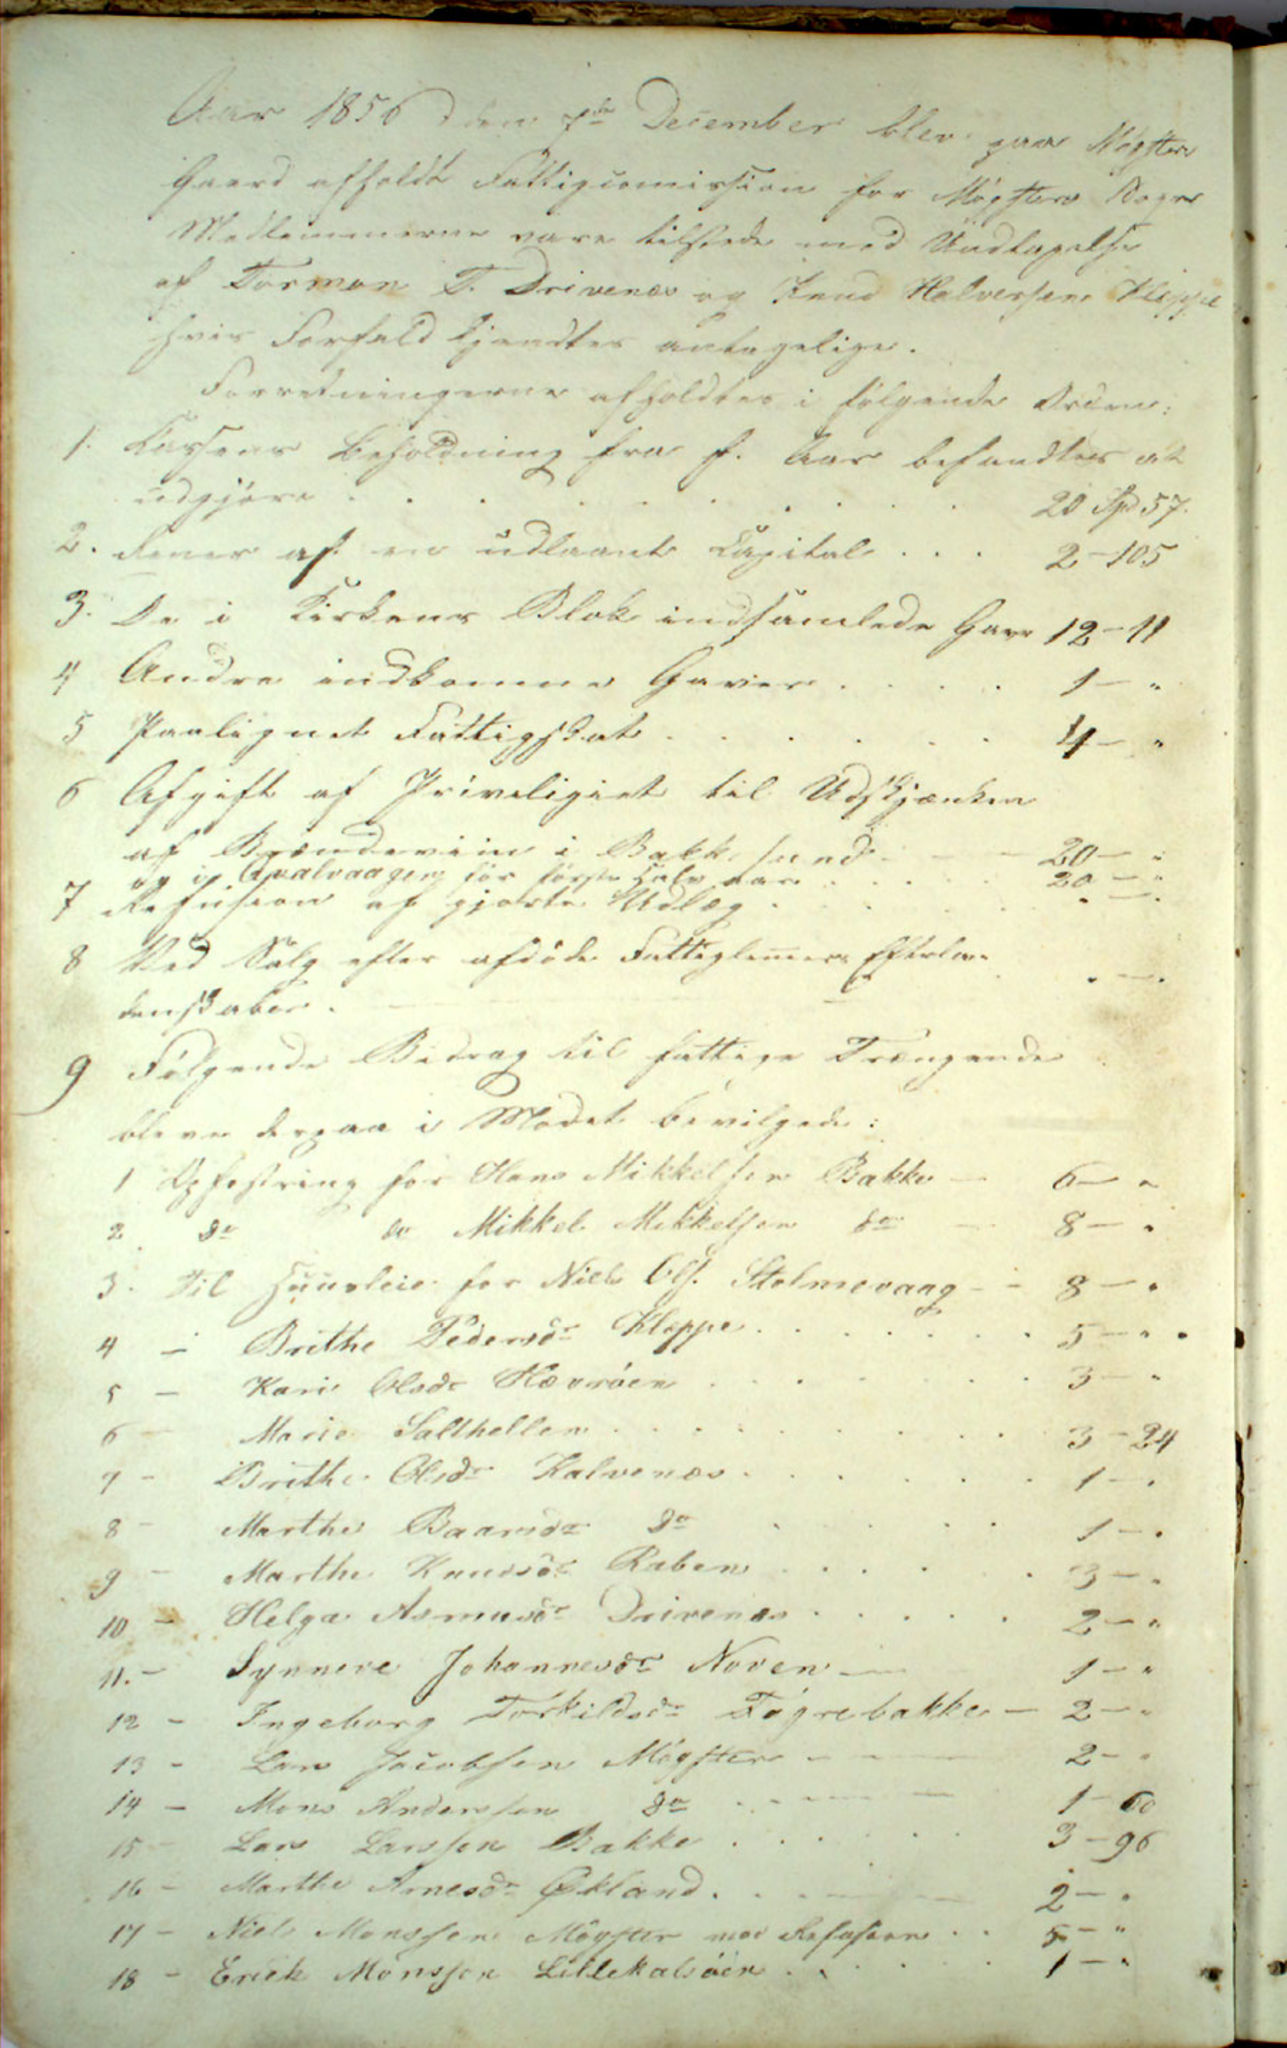 Aar 1856 den 7de December blev paa Møgster
Gaard afholdt Fattigcomission for Møgsters Sogn
Medlemmerne vare tilstede med Undtagelse
af Tormon T. Drivenes og Knud Halversen Kleppe
hvis Forfald kjendtes antagelige.
Forretningerne afholdtes i følgende Orden:
1. Cassens Beholdning fra f. Aar befandtes at
udgjøre . . . . . . . . . 20 Spd 57.
2. Renter af en udlaant Capital . . . 2 - 105
3. De i Kirkens Blok indsamlede Gaver 12 - 11
4 Andre indkomne Gaver . . . . 1 - "
5 Paalignet Fattigskat . . . . . . 4 - "
6 Afgift af Priveligiet til Udskjænken
af Brændeviin i Bakkesund - - - 20 - "
og i Qvalvaagen for første Halv aar . . . . 20 - "
7 Refusion af gjorte Udlæg . . . . . " - "
8 Ved Salg efter afdøde Fattiglemmers Efterla-
denskaber. " - "
9 Følgende Bidrag til fattige Trængende
bleve derpaa i Mødet bevilgede:
1 Opfostring for Hans Mikkelsen Bakke - 6 - "
2 do do Mikkel Mikkelsen do - 8 - "
3. Til Huusleie for Niels Ols. Stolmevaag - - 8 - "
4 - Brithe Pedersdr Kleppe . . . . . . . 5 - "
5 - Kari Olsdr Hævrøen . . . . . . 3 - "
6 - Marie Salthellen . . . . . . . . 3 - 24
7 - Brithe Olsdr Kalvenæs . . . . . . 1 - "
8 - Marthe Baarsdr do . . . . 1 - "
9 - Marthe Knudsdr Raben . . . . . 3 - "
10 - Helga Asmusdr Drivenæs . . . . . 2 - "
11. - Synneve Johannesdr Noven - 1 - "
12 - Ingeborg Torkildsdr Fógrebakke - 2 - "
13 - Lars Jacobsen Møgster - - - 2 - "
14 - Mons Anderssen do - - - 1 - 60
15 - Lars Larssen Bakke . . . . . . 3 - 96
16 - Marthe Arnesdr Økland . . - - - 2 - "
17 - Niels Monssen Møgster mod Refusion . . 5 - "
18 - Erick Monssen Lillekalsøen . . . . . 1 - "